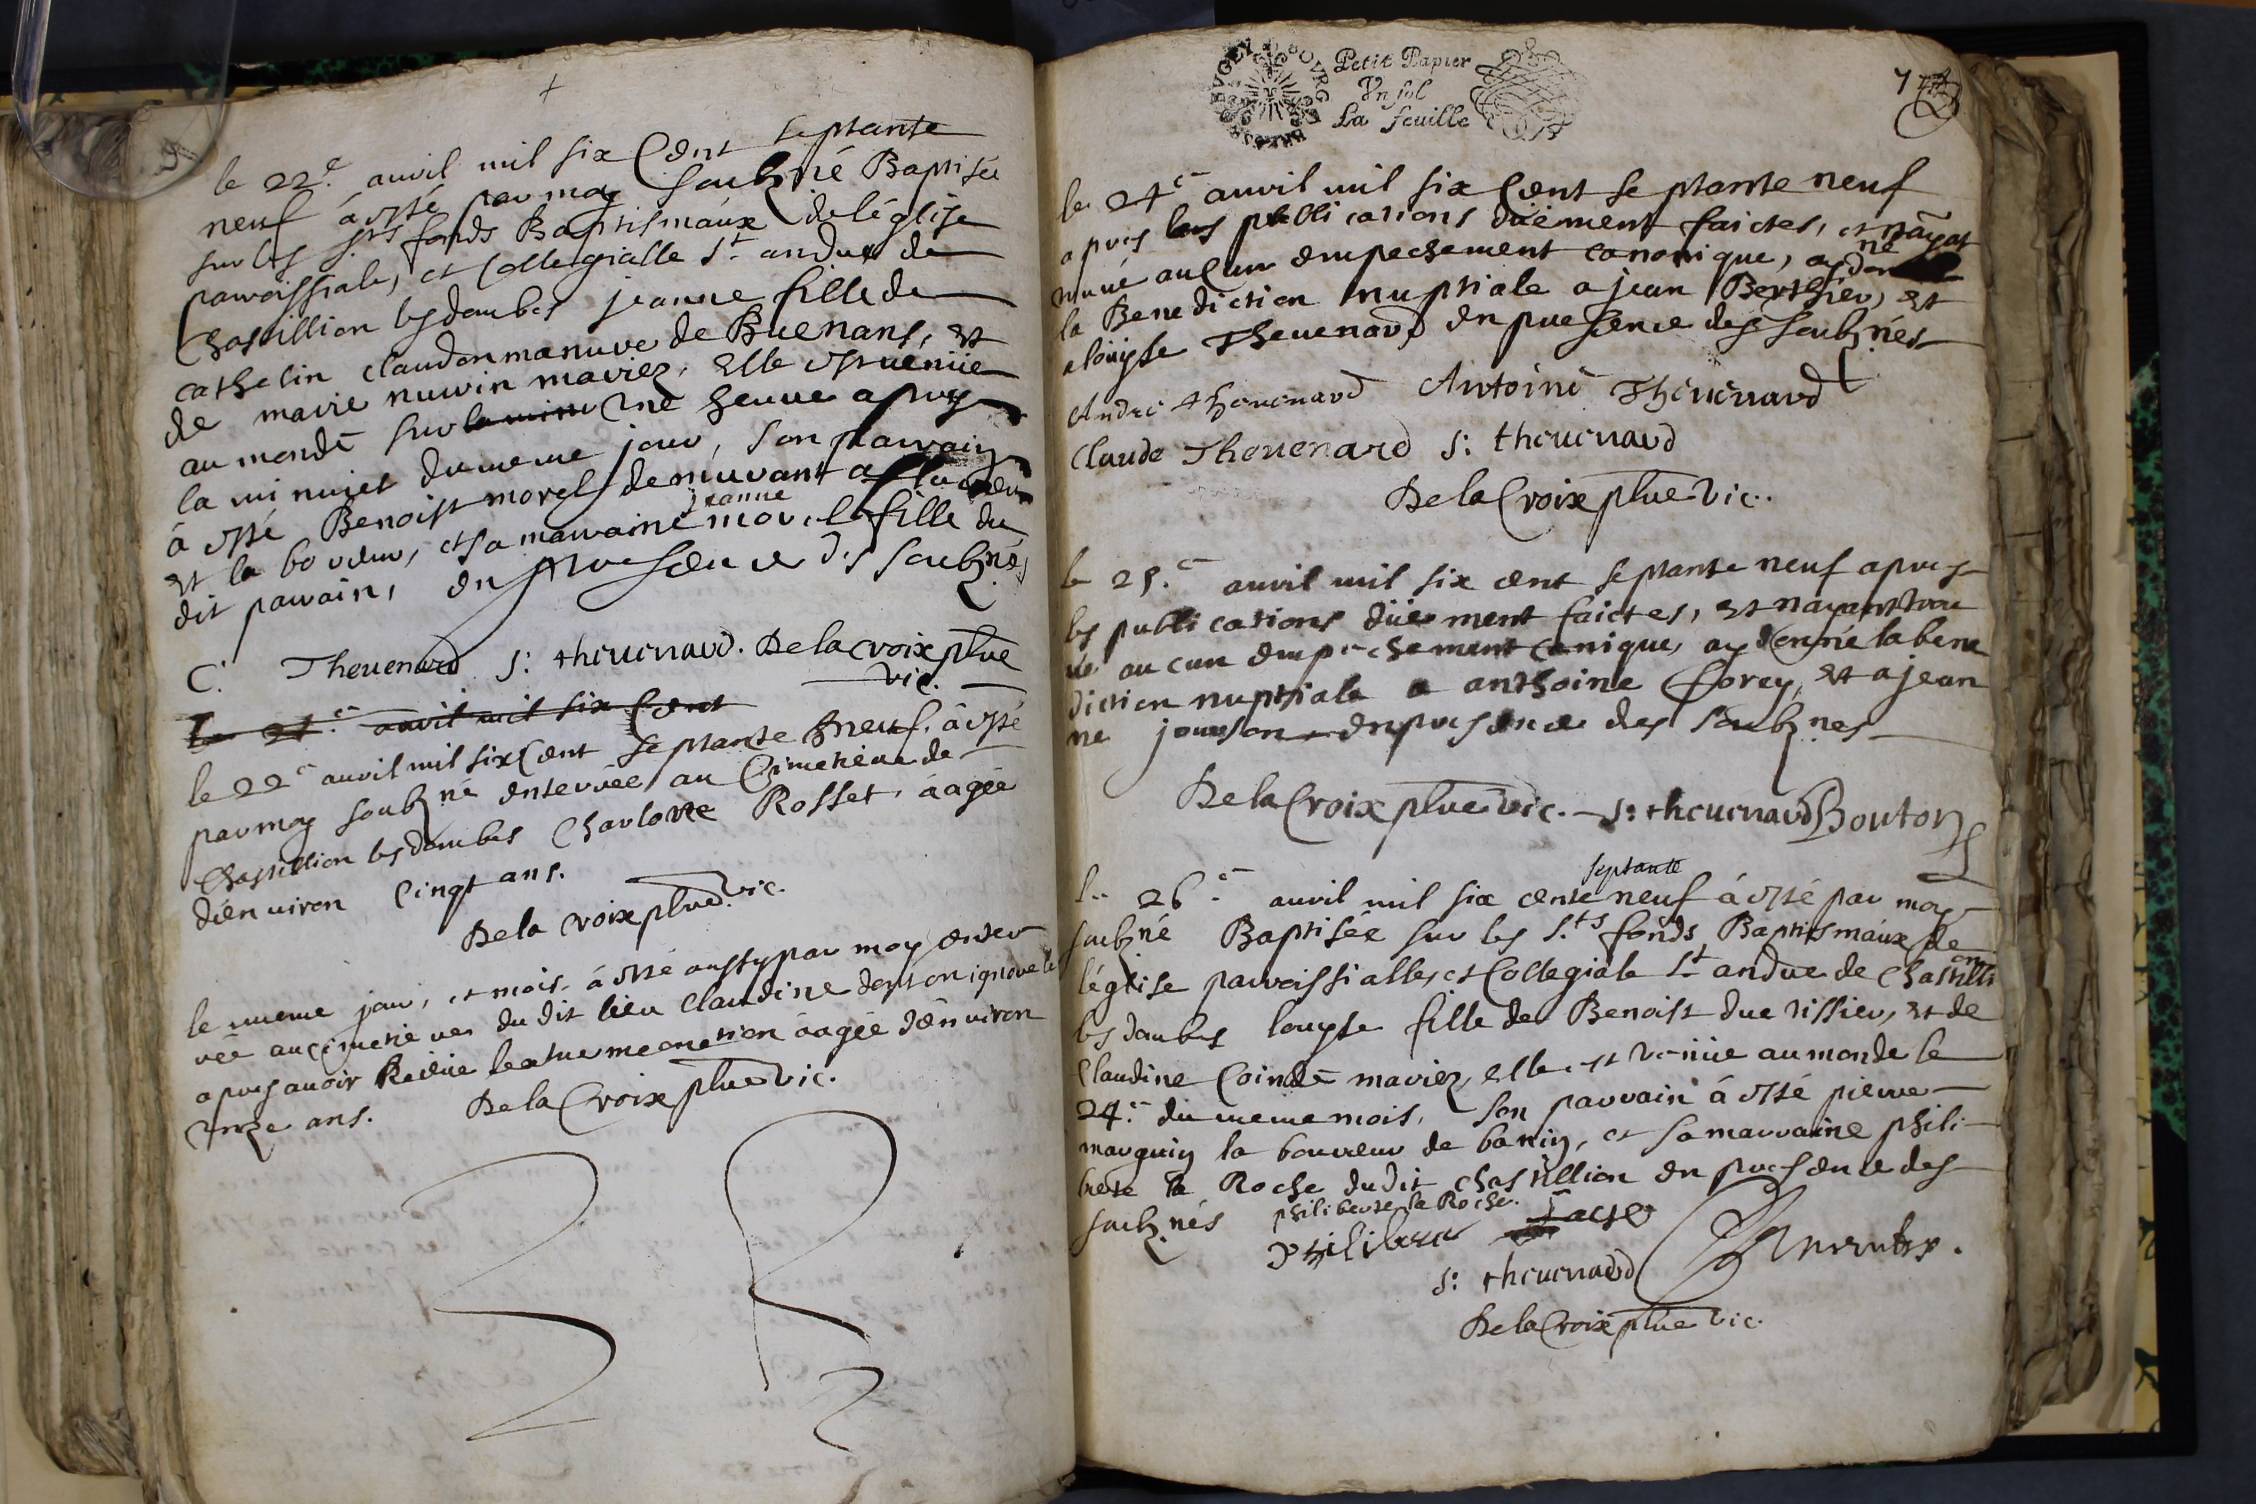 le 22.e auril mil six Cent septante
neuf à esté par moy soubz.né Baptisée
sur les s.ts fonds Baptismaux de l'église
parroissiale, et Collegialle S.t andre de
Chastillion les dombes jeanne fille de
cathelin claudon manuvre de Buenans, et
de marie nuvin mariez, elle est venüe
au monde sur une heure apres
la minuict du meme jour, son parrain
à esté Benoist morel demeurant a
et laboureur, et sa marraine jeanne morel fille du
dit parrain, en presence des soubz.nés
C. Theuenard S: theuenard. De la croix pbre
vic.
Le 21.e auril mil six Cent
le 22.e auril mil six Cent septante neuf, à esté
par moy soubz.né enterrée au Cimetiere de
Chastillion les dombes Charlotte Rosset, âagée
d'enuiron Cinqt ans.
De la Croix pbre vic.
le meme jour, et mois, à esté aussy par moy enter
rée au cimetiere du dit lieu Claudine dont on ignore le
apres auoir âagée d'enuiron
unze ans. De la Croix pbre vic.
Petit Papier
Vn sol
La feuille
BVGEY BOVRG
7
le 24.e auril mil six Cent septante neuf
apres les publications düement faictes, et n'ayãt
trouué aucun empechement canonique, ay donné
la Benediction nuptiale a jean Berthier, et
a loüyse Theuenard en presence des soubz.nés
André theuenard Antoine Theuenard
Claude Theuenard S: theuenard
De la Croix pbre Vic.
le 25.e auril mil six cent septante neuf apres
les publications düement faictes, et nayant trou
ué aucun empechement canique, ay donné la bene
diction nuptiale a anthoine forey, et a jean
ne jourson en presence des soubz.nes
De la Croix pbre vic. S: theuenard Bouton
le 26.e auril mil six cente septante neuf à esté par moy
soubz.né Baptisée sur les S.ts fonds Baptismaux de
léglise parroissialle, et Collegiale S.t andre de Chastillion
les dombes louyse fille de Benoist du tissier, et de
Claudine Cointe mariez, elle est venüe au monde le
24.e du meme mois, son parrain à esté pierre
marguin laboureur de banin, et sa marraine phili
berte la Roche dudit chastillion en presence des
soubz.nés philiberte la Roche.
S: theuenard
De la Croix pbre vic.